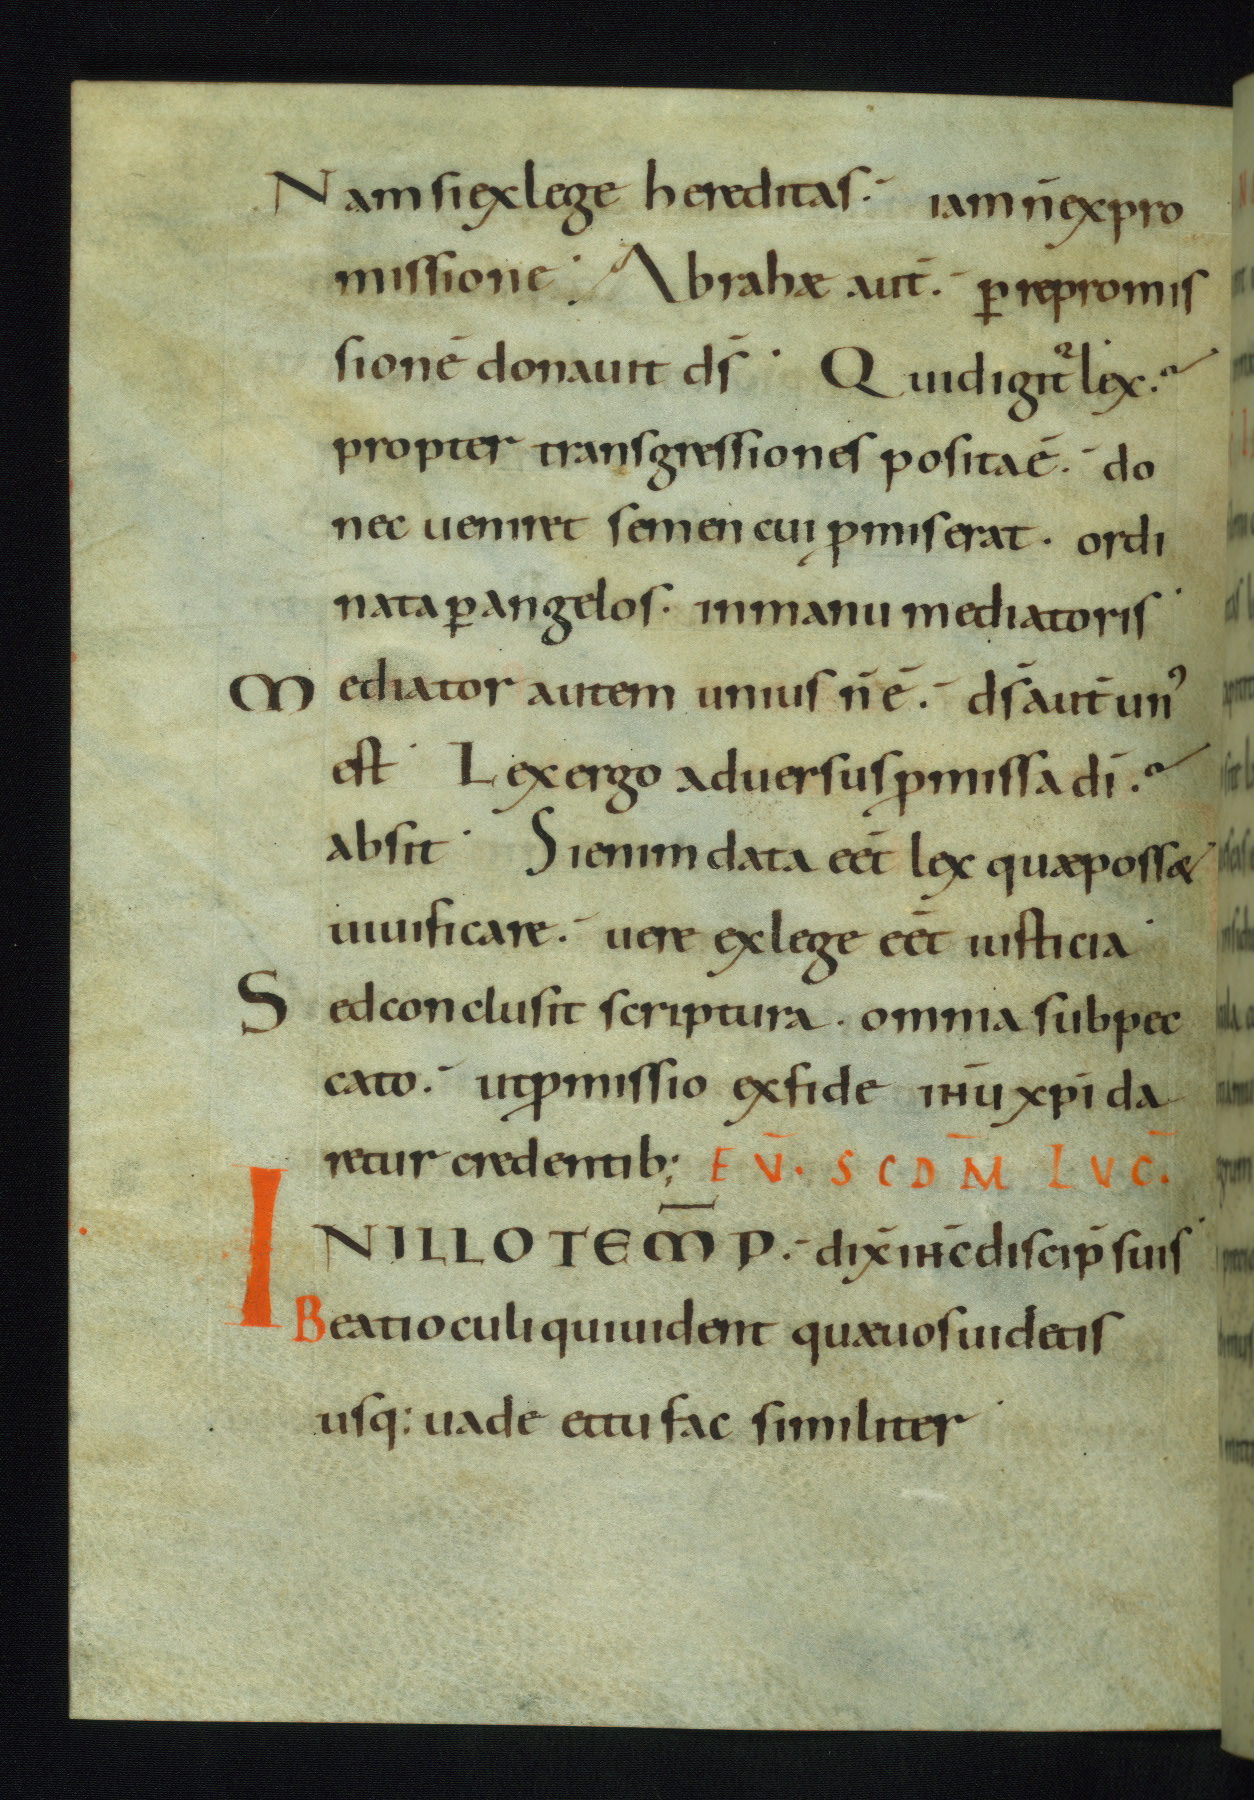 Nam si ex lege hereditas. iam n̄ ex pro
missione. Abrahæ aut̄. ꝑ repromis
sionē donauit ds̄. Quid igit᷑ lex.
propter transgressiones posita ē. do
nec ueniret semen cui ꝓmiserat. ordi
nata ꝑ angelos. in manu mediatoris.
Mediator autem unius n̄ ē. ds̄ aut̄ unꝰ
est. Lex ergo aduersus ꝓmissa dī.
absit. Si enim data eēt lex quæ possæ
uiuificare. uere ex lege eēt iusticia.
Sed conclusit scriptura. omnia sub pec
cato. ut ꝓmissio ex fide ihū xp̄i da
retur credentib; EV̄. SCD̄M̄ LVC̄.
IN ILLO TEM̄P. dix̄ ih̄c discip̄ suis.
Beati oculi qui uident quæ uos uidetis
usq: uade et tu fac similiter.